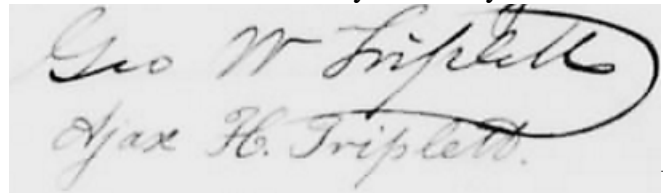 Geo W Triplett
Ajax H. Triplett.